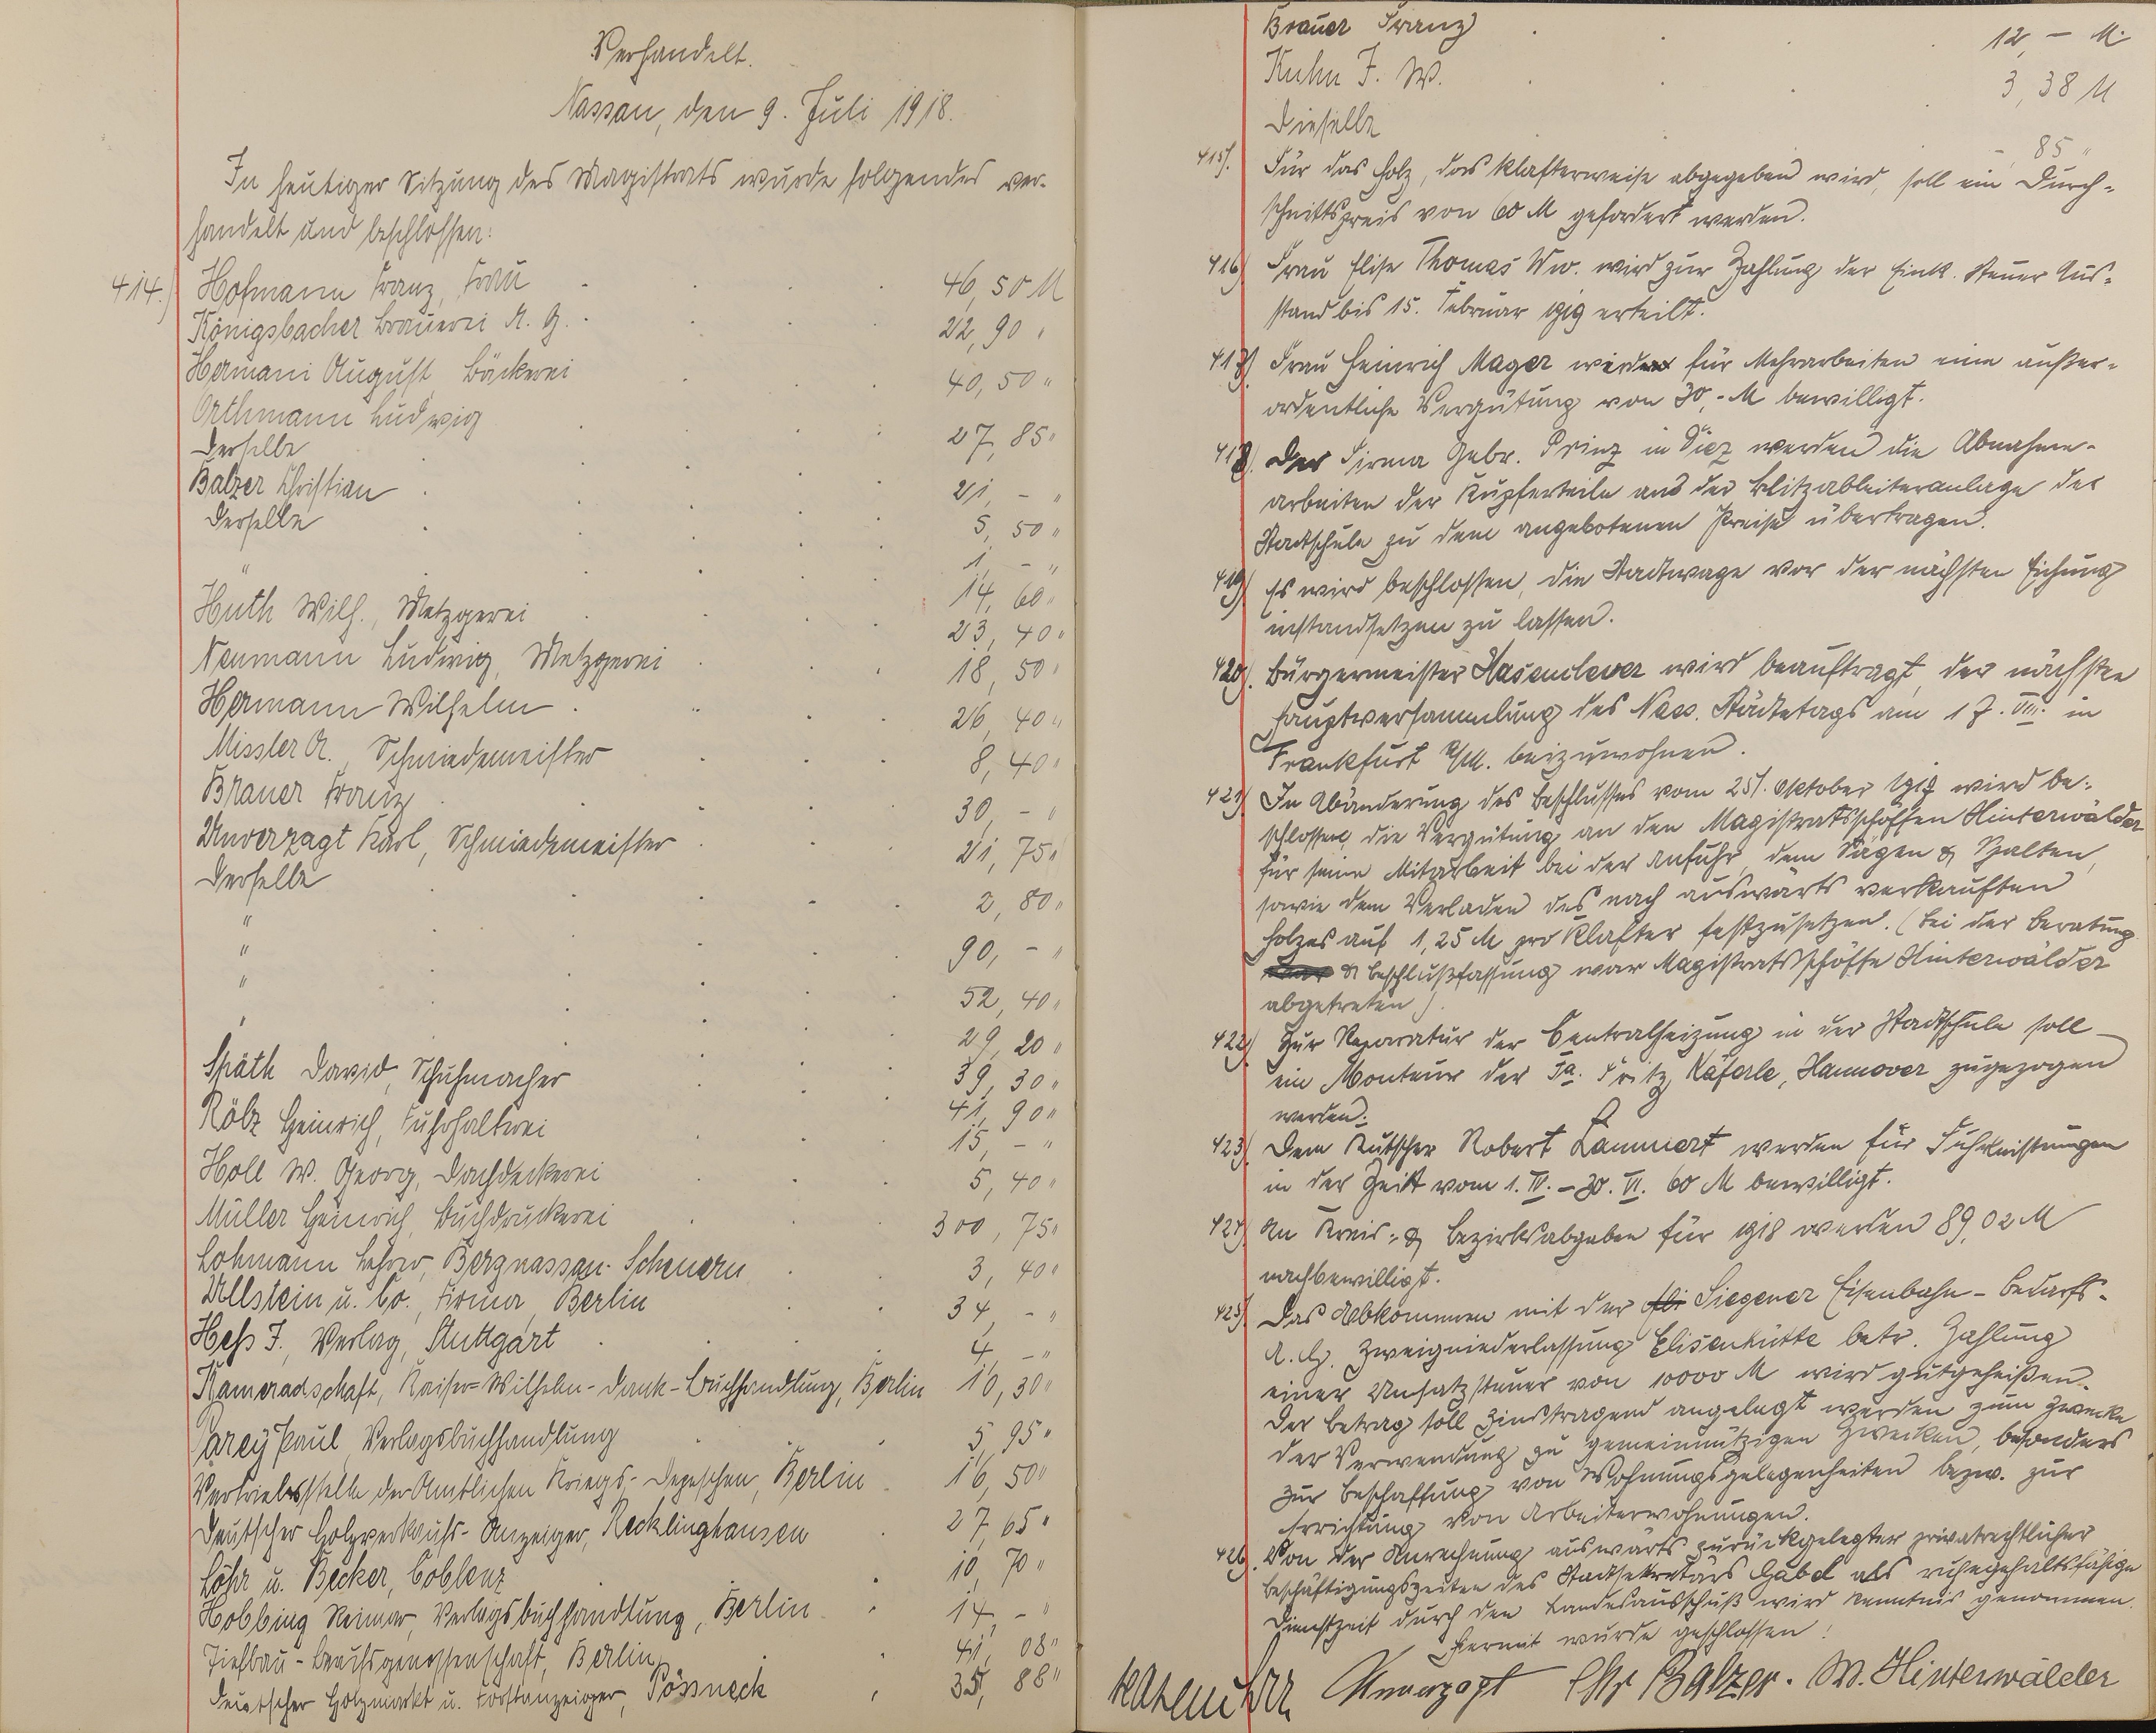 Verhandelt.
Nassau, den 9. Juli 1918.
In heutiger Sitzung des Magistrats wurde folgendes ver-
handelt und beschlossen:
414.) Hofmann Franz, Frau 46,50 M
Königsbacher Brauerei A. G. 22,90 "
Hermani August Bäckerei 40,50 "
Orthmann Ludwig 27,85 "
Derselbe 21,- "
Balzer Christian 5,50 "
Derselbe 1,- "
" 14,60 "
Huth Wilh., Metzgerei 23,40 "
Neumann Ludwig, Metzgerei 18,50 "
Hermann Wilhelm 26,40 "
Missler A., Schmiedemeister 8,40 "
Brauer Franz 30,- "
Unverzagt Karl, Schmiedemeister 21,75 "
Derselbe 2,80 "
" 90,- "
" 52,40 "
" 29,20 "
" 39,30 "
Späth David, Schuhmacher 41,90 "
Rölz Heinrich, Fuhrhalterei 15,- "
Holl W. Georg, Dachdeckerei 5,40 "
Müller Heinrich, Buchdruckerei 300,75 "
Lohmann Lehrer, Bergnassau-Scheuern 3,40 "
Ullstein u. Co., Firma, Berlin 34,- "
Hess J., Verlag, Stuttgart 4,- "
Kameradschaft, Kaiser-Wilhelm-Dank-Buchhandlung, Berlin 10,30 "
Parey Paul, Verlagsbuchhandlung 5,95 "
Vertriebsstelle der Amtlichen Kriegs-Depeschen, Berlin 16,50 "
Deutscher Holzverkaufs-Anzeiger, Recklinghausen 27,65 "
Löhr u. Becker, Coblenz 10,70 "
Hobbing Reimar, Verlagsbuchhandlung, Berlin 14,- "
Tiefbau-Berufsgenossenschaft, Berlin 41,08 "
Deutscher Holzmarkt u. Forstanzeiger, Pössneck 35,88 "
Brauer Franz 12,- M.
Kuhn F. W. 3,38 M
Dieselbe -,85 "
415). Für das Holz, das klafterweise abgegeben wird, soll ein Durch-
schnittspreis von 60 M gefordert werden.
416) Frau Elise Thomas Ww. wird zur Zahlung der Eink. Steuer Aus-
stand bis 15. Februar 1919 erteilt.
417) Frau Heinrich Mager wird für Mehrarbeiten eine außer-
ordentliche Vergütung von 30,- M bewilligt.
418) Der Firma Gebr. Prinz in Diez werden die Abnahme-
arbeiten der Kupferteile aus der Blitzableiteranlage der
Stadtschule zu dem angebotenen Preise übertragen.
419) Es wird beschlossen, die Stadtwage vor der nächsten Eichung
instandsetzen zu lassen.
420). Bürgermeister Hasenclever wird beauftragt, der nächsten
Hauptversammlung des Nass. Städtetags am 17. VIII. in
Frankfurt a/M. beizuwohnen.
421) In Abänderung des Beschlusses vom 25. Oktober 1917 wird be-
schlossen, die Vergütung an den Magistratsschöffen Hinterwälder
für seine Mitarbeit bei der Anfuhr, dem Sägen & Spalten,
sowie dem Verladen des nach auswärts verkauften
Holzes auf 1,25 M pro Klafter festzusetzen. (Bei der Beratung
& Beschlußfassung war Magistratsschöffe Hinterwälder
abgetreten).
422) Zur Reparatur der Centralheizung in der Stadtschule soll
ein Monteur der Fa. Fritz Käferle, Hannover zugezogen
werden.
423) Dem Kutscher Robert Lammert werden für Fuhrleistungen
in der Zeit vom 1. IV. - 30. VI. 60 M bewilligt.
424) An Kreis- & Bezirksabgaben für 1918 werden 89,02 M
nachbewilligt.
425) Das Abkommen mit der Siegener Eisenbahn-Bedarfs-
A. G. Zweigniederlassung Elisenhütte betr. Zahlung
einer Umsatzsteuer von 10000 M wird gutgeheißen.
Der Betrag soll zinstragend angelegt werden zum Zwecke
der Verwendung zu gemeinnützigen Zwecken, besonders
zur Beschaffung von Wohnungsgelegenheiten bezw. zur
Errichtung von Arbeiterwohnungen.
426). Von der Anrechnung auswärts zurückgelegter privatrechtlicher
Beschäftigungszeiten des Stadtsekretärs Gabel als ruhegehaltsfähige
Dienstzeit durch den Landesausschuß wird Kenntnis genommen.
Hiermit wurde geschlossen!
Unverzagt Chr Balzer. W. Hinterwälder